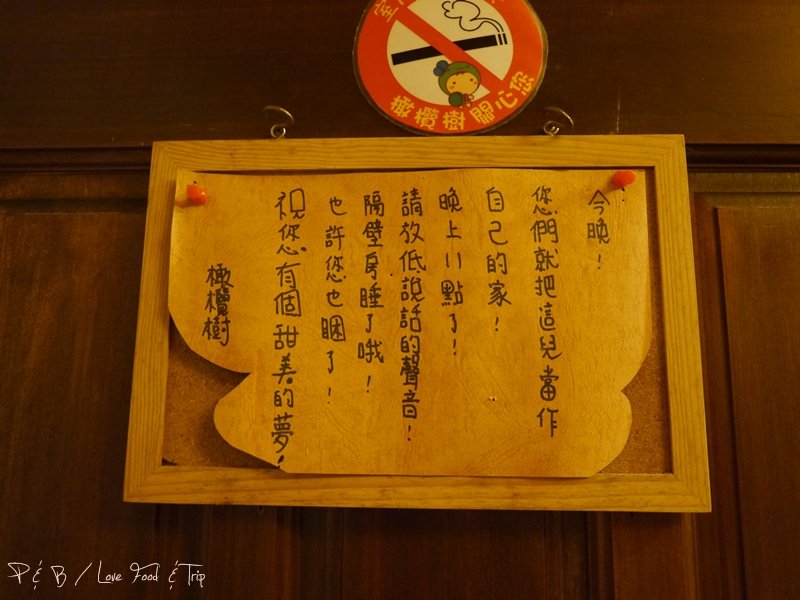 室
橄欖樹關心您
今晚！
您們就把這兒當作
自己的家！
晚上11點了！
請放低說話的聲音！
隔壁房睡了哦！
也許您也睏了！
祝您有個甜美的夢！
橄欖樹
P & B / Love Food & Trip